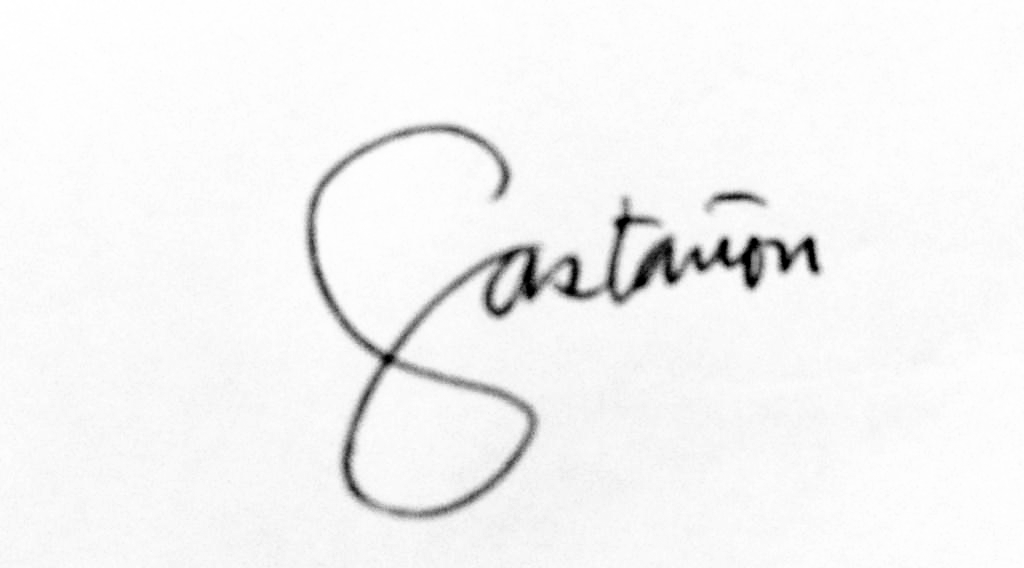 Castañon